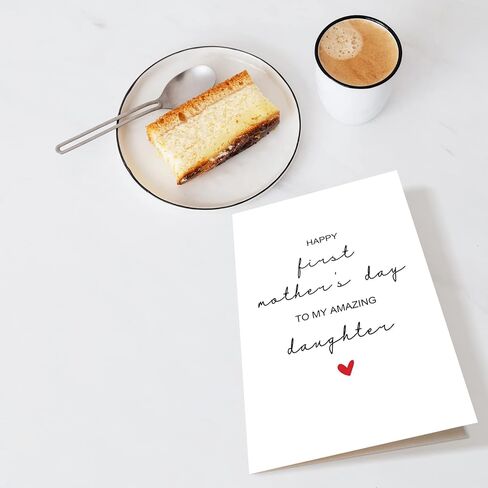 HAPPY
first
mother's day
TO MY AMAZING
daughter